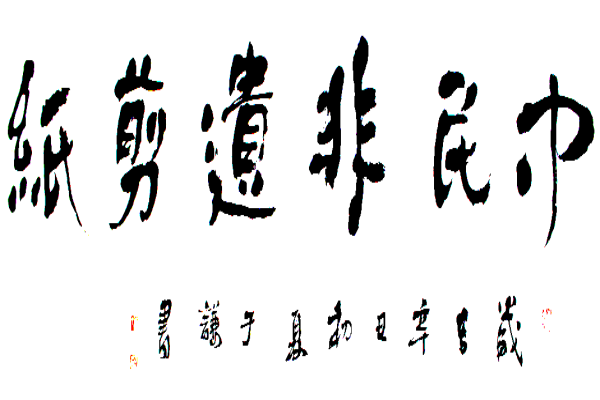 巾民非遺剪紙
歲在辛丑初夏于謙書